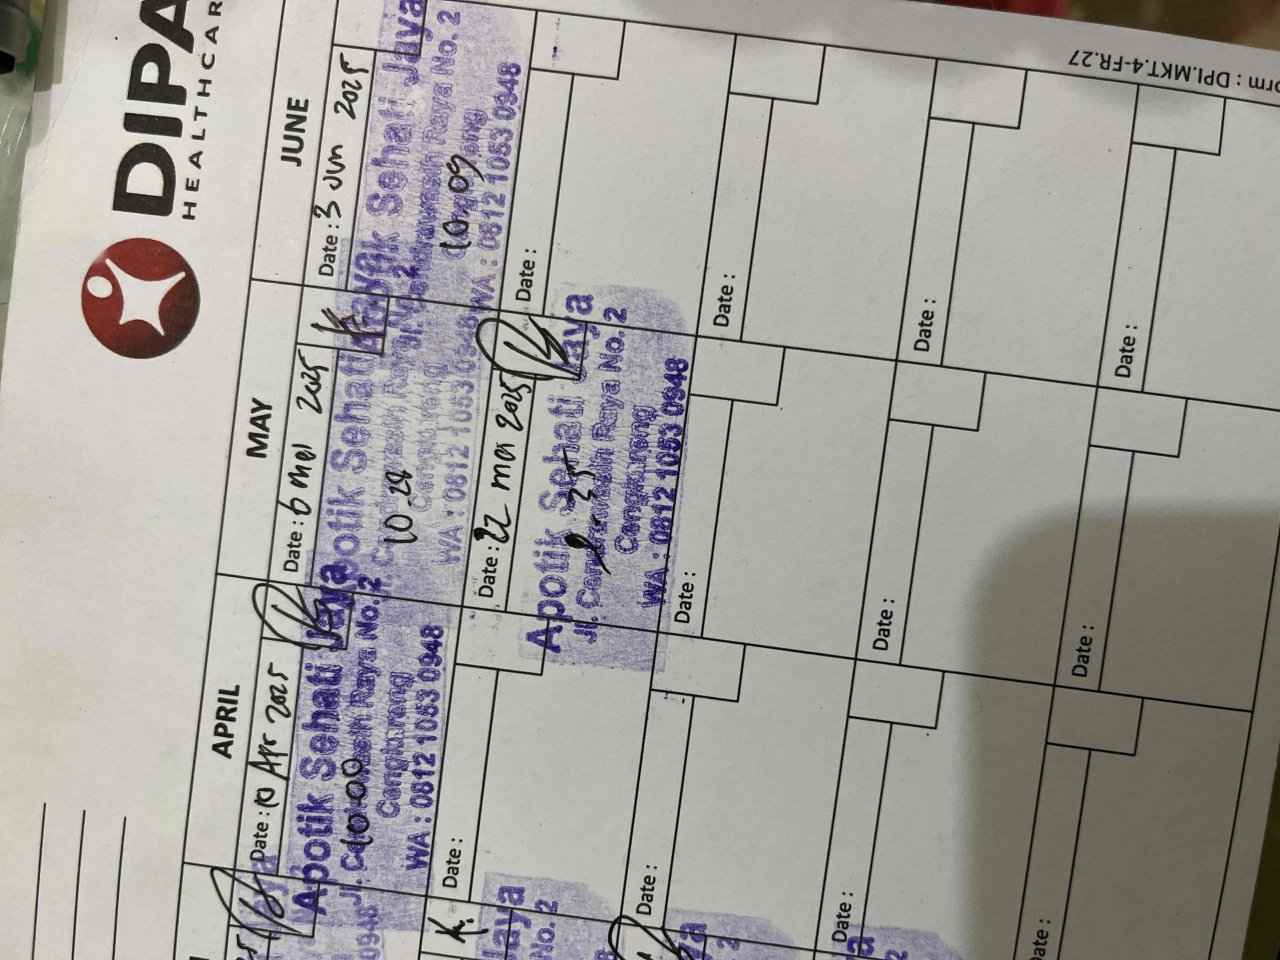 DIPA
HEALTHCAR
orm : DPI.MKT.4-FR.27
APRIL
Date : 10 Apr 2025
Apotik Sehati Jaya
Raya No. 2
Cengkareng
WA : 0812 1053 0948
10.00
Date :
Date :
Date :
Date :
MAY
Date : 6 mei 2025
Apotik Sehati
10.28
WA : 0812 1053 0948
Date : 22 mei 2025
Apotik Sehati Jaya
Raya No. 2
Cengkareng
WA : 0812 1053 0948
Date :
Date :
Date :
JUNE
Date : 3 Jun 2025
Sehati Jaya
Raya No. 2
10.09
WA : 0812 1053 0948
Date :
Date :
Date :
Date :
0948
K.
Jaya
No. 2
2
2